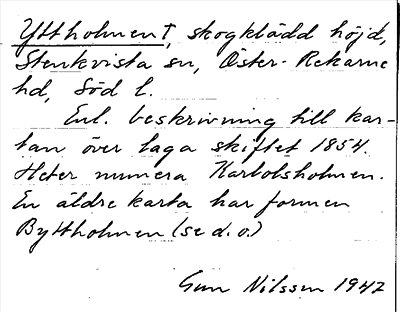 Yttholmen†, skogklädd höjd,
Stenkvista sn, Öster-Rekarne
hd, Söd l.
Enl. beskrivning till kar-
tan över laga skiftet 1854.
Heter numera Karbolsholmen.
En äldre karta har formen
Byttholmen (se d. o.)
Gun Nilsson 1947